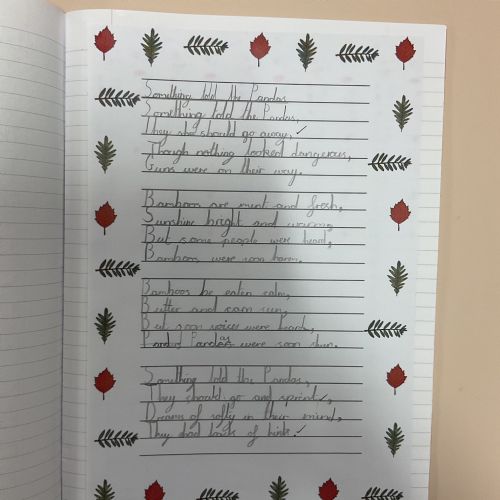 Something told the Pandas
Something told the Pandas,
They should go away,
Though nothing looked dangerous,
Guns were on their way.
Bamboos are mint and fresh,
Sunshine bright and warm,
But some people were heard,
Bamboos were soon
Bamboos be eaten calm,
Butter and corn
But soon voices were heard,
Pandas were soon
Something told the Pandas,
They should go and sprint,
Dreams of in their mind,
They had lots of